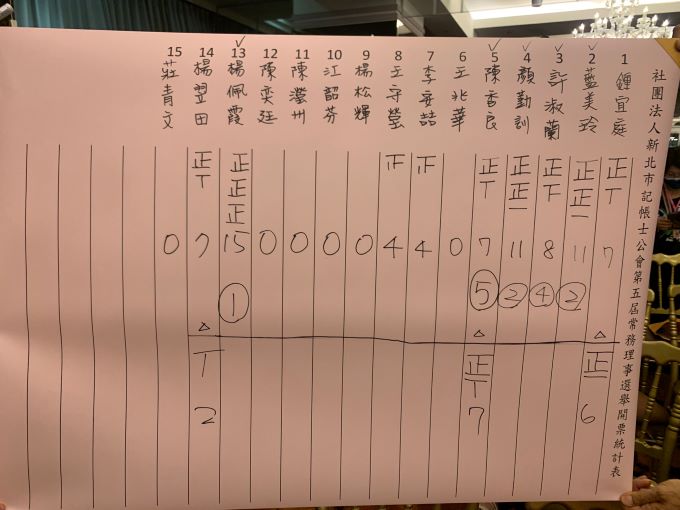 社團法人新北市記帳士公會第五屆常務理事選舉開票統計表
1 鍾宜庭 正丅 7 △ 正一 6
✓ 2 藍美玲 正正一 11 ②
✓ 3 許淑蘭 正下 8 ④
✓ 4 顏勤訓 正正一 11 ②
✓ 5 陳香良 正丅 7 ⑤ △ 正丅 7
6 王兆華 0
7 李安喆 4
8 王守瑩 4
9 楊松輝 0
10 江韶芬 0
11 陳瀅州 0
12 陳奕廷 0
✓ 13 楊佩霞 正正正 15 ①
14 楊翌田 正丅 7 △ 丅 2
15 莊青文 0